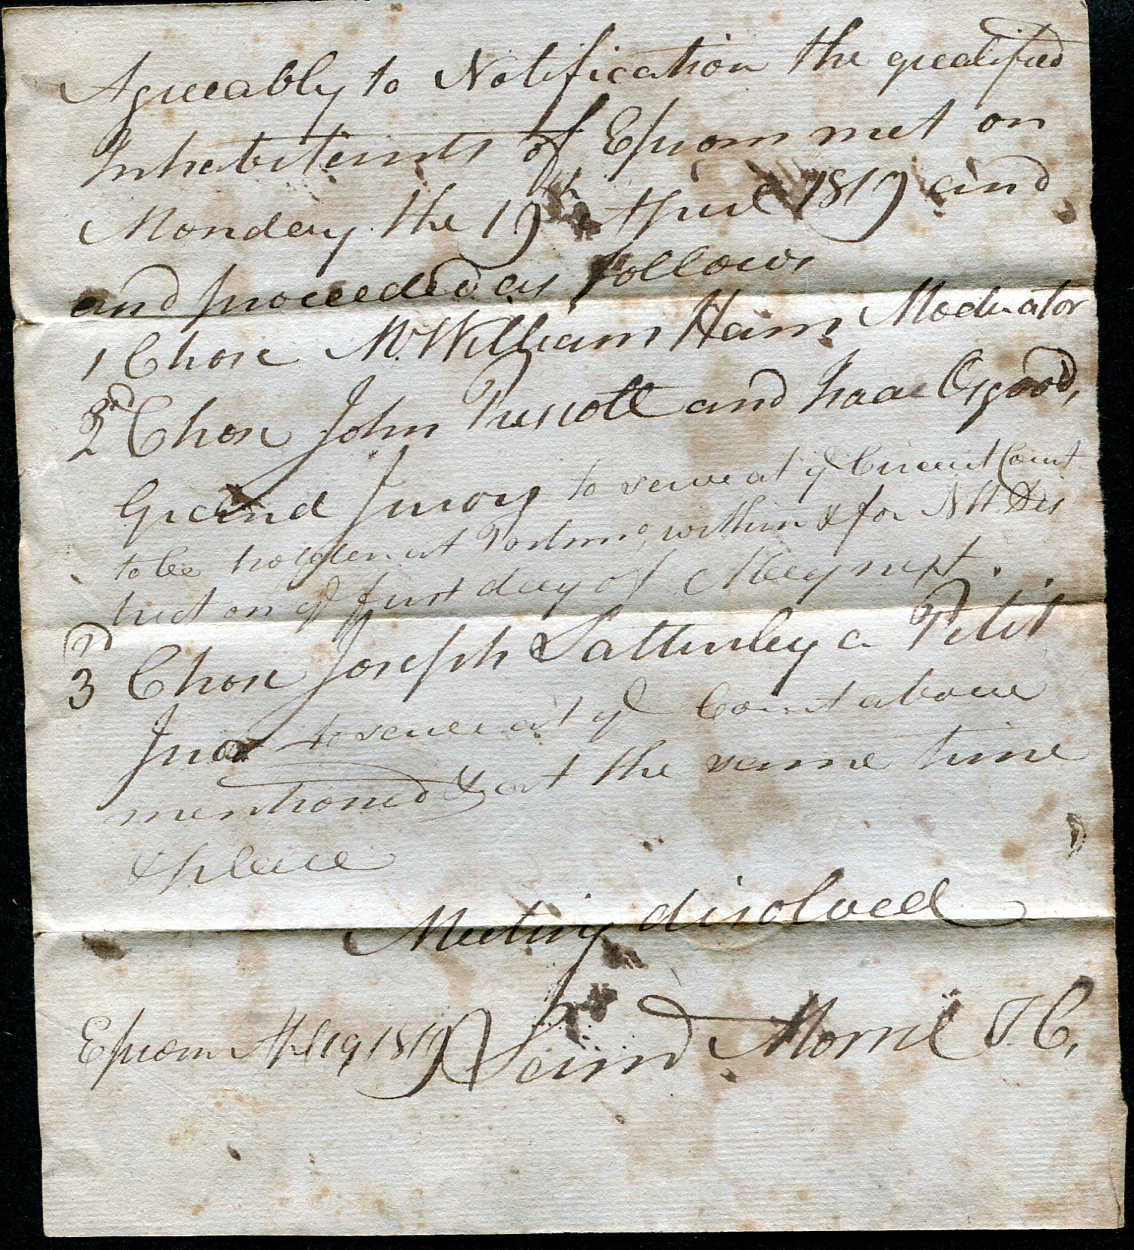 Agreeably to Notification the qualified
Inhabitants of Epsom met on
Monday the 19th April 1819 and
and proceeded as follows
1 Chose Mr. William Ham Moderator
2nd Chose John Prescott and Isaac Osgood,
Grand Jurors to serve at ye Circuit Court
to be holden at Portsmo within & for NH Dis
trict on ye first day of May next.
3rd Chose Joseph Satturley a Petit
Juror to serve at ye Court above
mentioned & at the same time
& place
Meeting disolved
Epsom Apl 19 1819 Morril T. C.